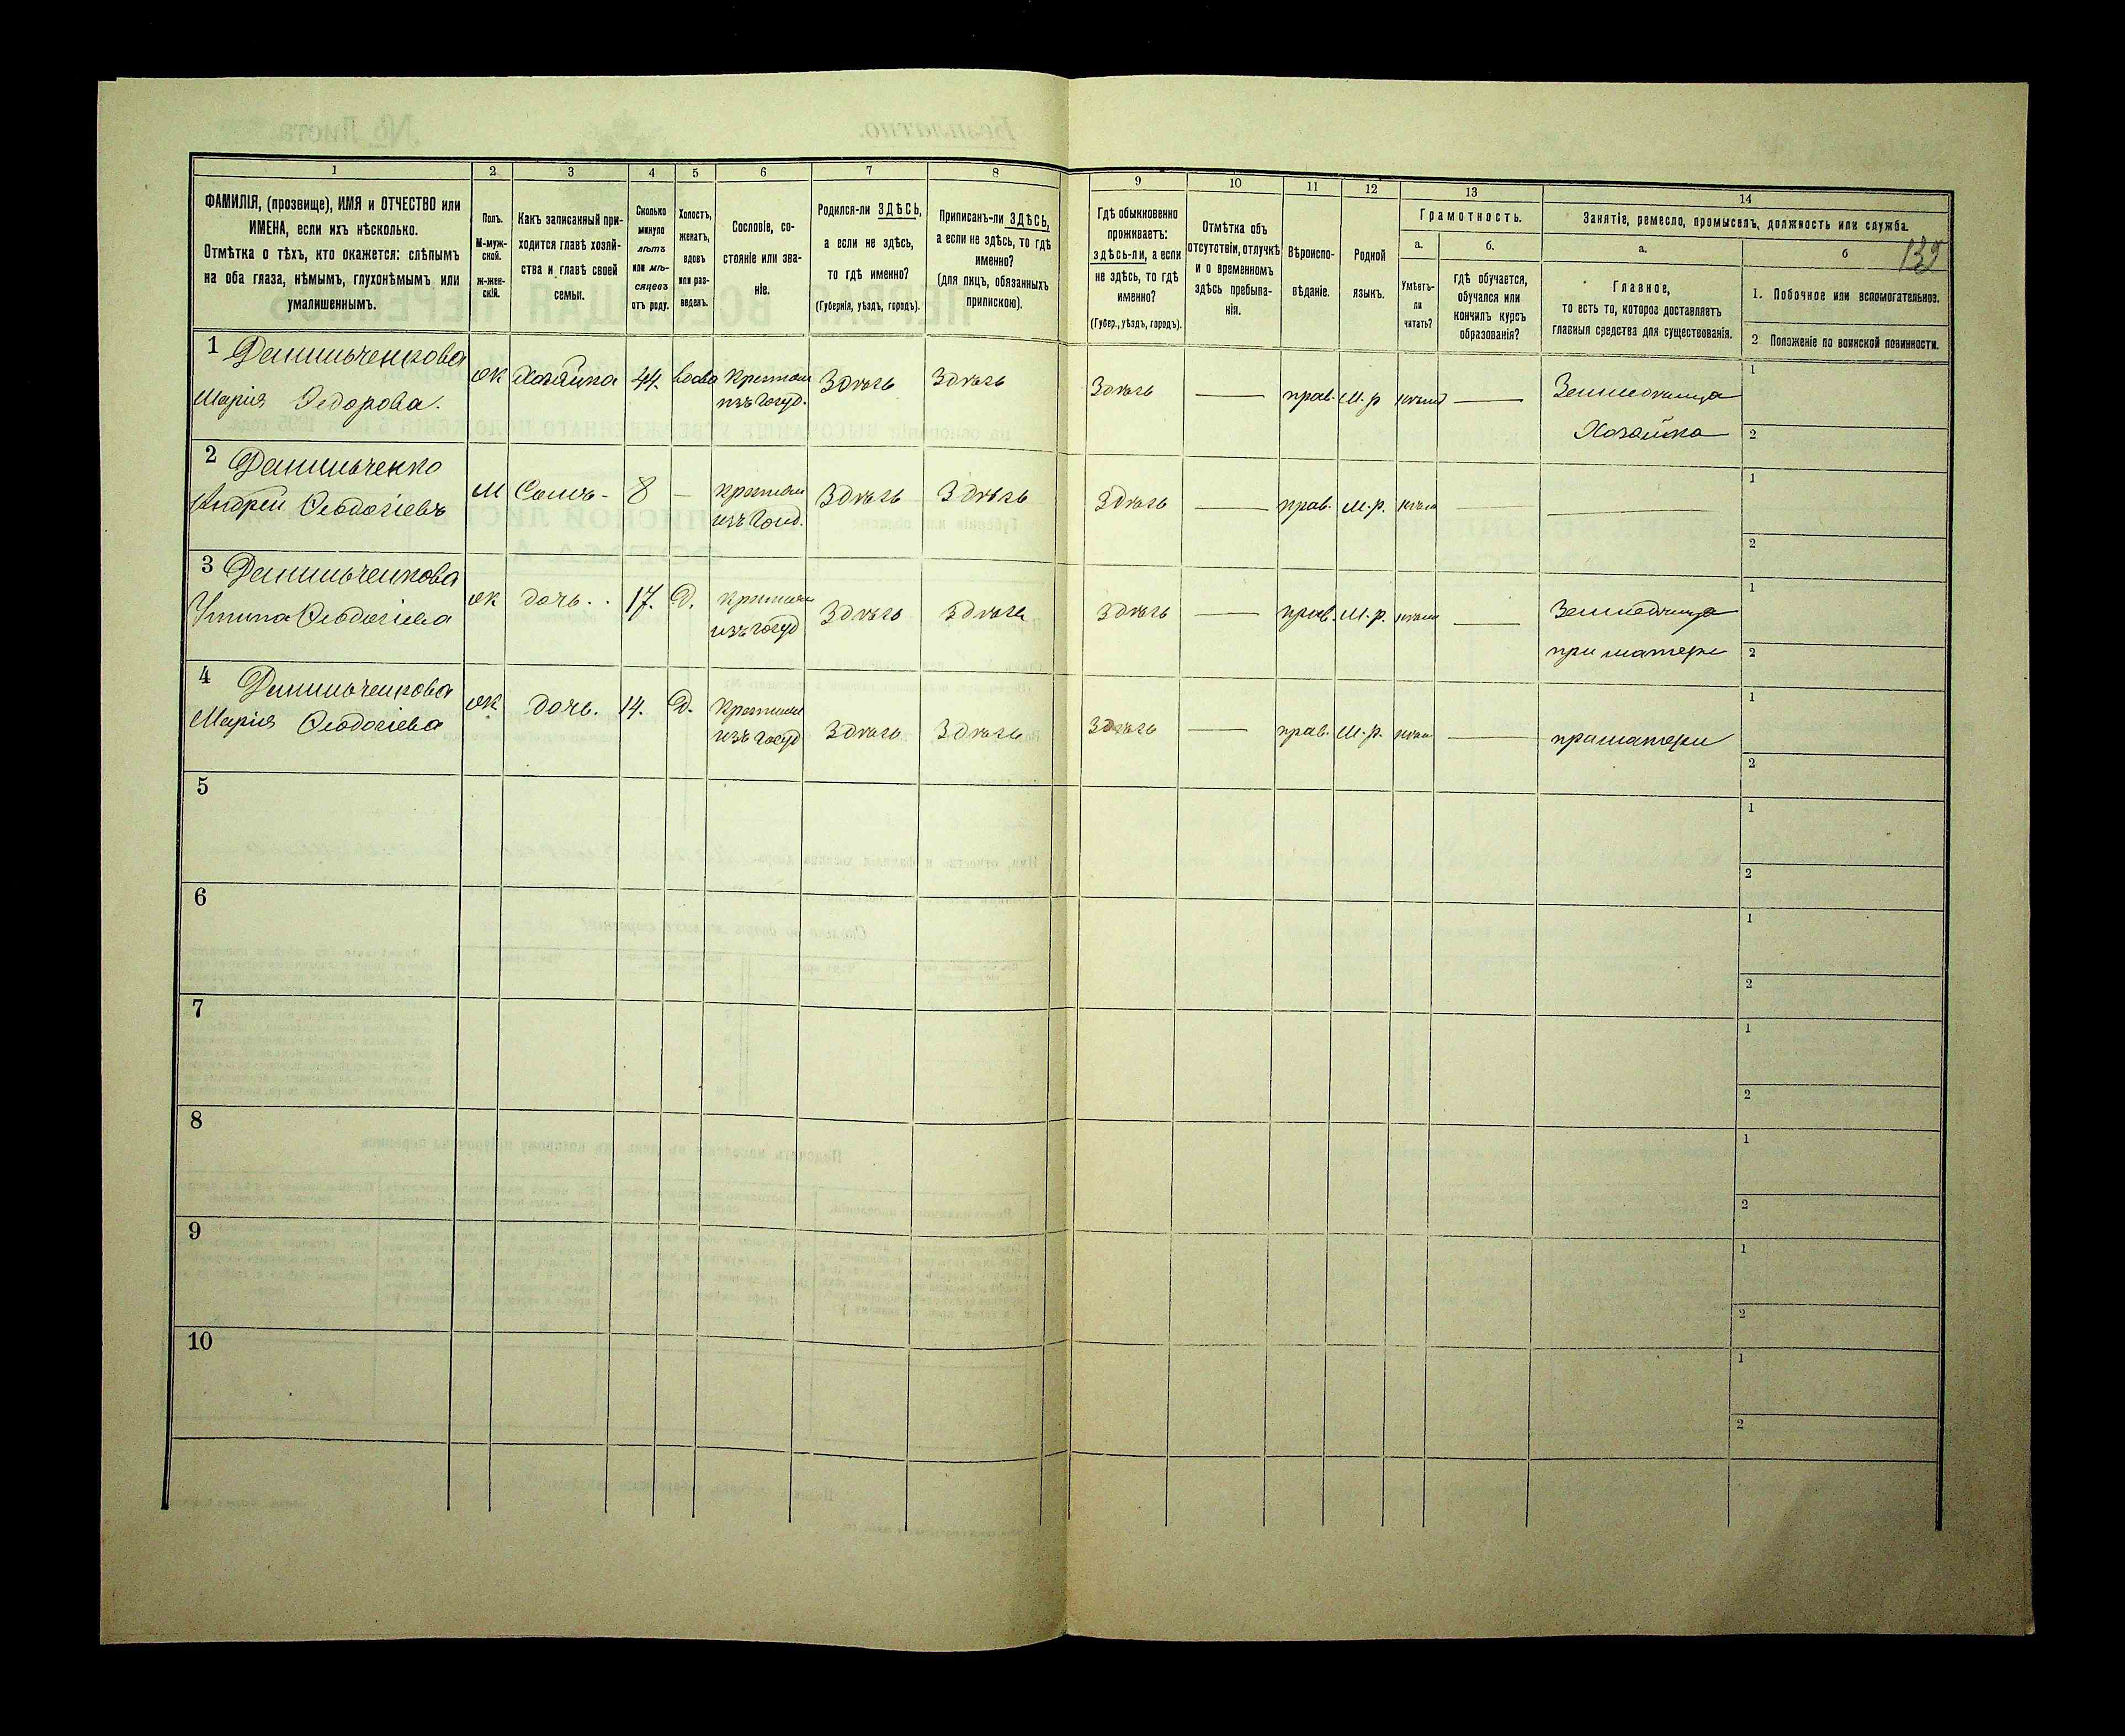 1
2
3
4
5
6
7
8
ФАМИЛІЯ, (прозвище), ИМЯ и ОТЧЕСТВО или
ИМЕНА, если ихъ нѣсколько.
Отмѣтка о тѣхъ, кто окажется: слѣпымъ
на оба глаза, нѣмымъ, глухонѣмымъ или
умалишеннымъ.
Полъ.
М-муж-
ской.
ж-жен-
скій.
Какъ записанный при-
ходится главѣ хозяй-
ства и главѣ своей
семьи.
Сколько
минуло
лѣтъ
или мѣ-
сяцевъ
отъ роду.
Холостъ,
женатъ,
вдовъ
или раз-
веденъ.
Сословіе, со-
стояніе или зва-
ніе.
Родился-ли ЗДѢСЬ,
а если не здѣсь,
то гдѣ именно?
(Губернія, уѣздъ, городъ).
Приписанъ-ли ЗДѢСЬ,
а если не здѣсь, то гдѣ
именно?
(для лицъ, обязанныхъ
припискою).
9
10
11
12
13
14
Гдѣ обыкновенно
проживаетъ:
здѣсь-ли, а если
не здѣсь, то гдѣ
именно?
(Губер., уѣздъ, городъ).
Отмѣтка объ
отсутствіи, отлучкѣ
и о временномъ
здѣсь пребыва-
ніи.
Вѣроиспо-
вѣданіе.
Родной
языкъ.
Грамотность.
а.
б.
Умѣетъ-
ли
читать?
гдѣ обучается,
обучался или
кончилъ курсъ
образованія?
Занятіе, ремесло, промыселъ, должность или служба.
а.
б
Главное,
то есть то, которое доставляетъ
главныя средства для существованія.
1. Побочное или вспомогательное.
2 Положеніе по воинской повинности.
1 Данильченкова
Марія Федорова.
ж Хозяйка 44. вдова Крестьян
изъ госуд. Здѣсь Здѣсь Здѣсь — прав. м.р нѣтъ —
Земледѣлица
Хозяйка
1
2
2 Данильченко
Андрей Феодосіевъ
М Сынъ - 8 — крестьян
изъ госуд. Здѣсь Здѣсь Здѣсь — прав. м.р. нѣтъ — —
1
2
3 Данильченкова
Устина Феодосіева
ж дочь. 17. Д. крестьян
изъ госуд Здѣсь Здѣсь Здѣсь — прав. м.р. нѣтъ —
Земледѣлица
при матери
1
2
4 Данильченкова
Марія Феодосіева
ж дочь. 14. Д. Крестьян
изъ госуд Здѣсь Здѣсь Здѣсь — прав. м.р. нѣтъ —
при матери
1
2
5
1
2
6
1
2
7
1
2
8
1
2
9
1
2
10
1
2